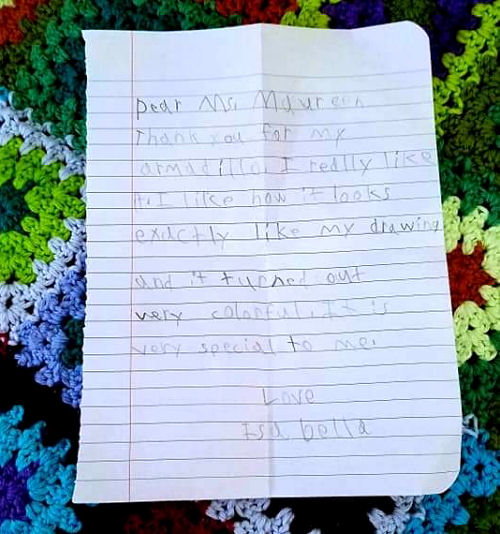 Dear Ms. Maureen
Thank you for my
armadillo. I really like
it. I like how it looks
exactly like my drawing
and it turned out
very colorful. It is
very special to me.
Love
Isabella